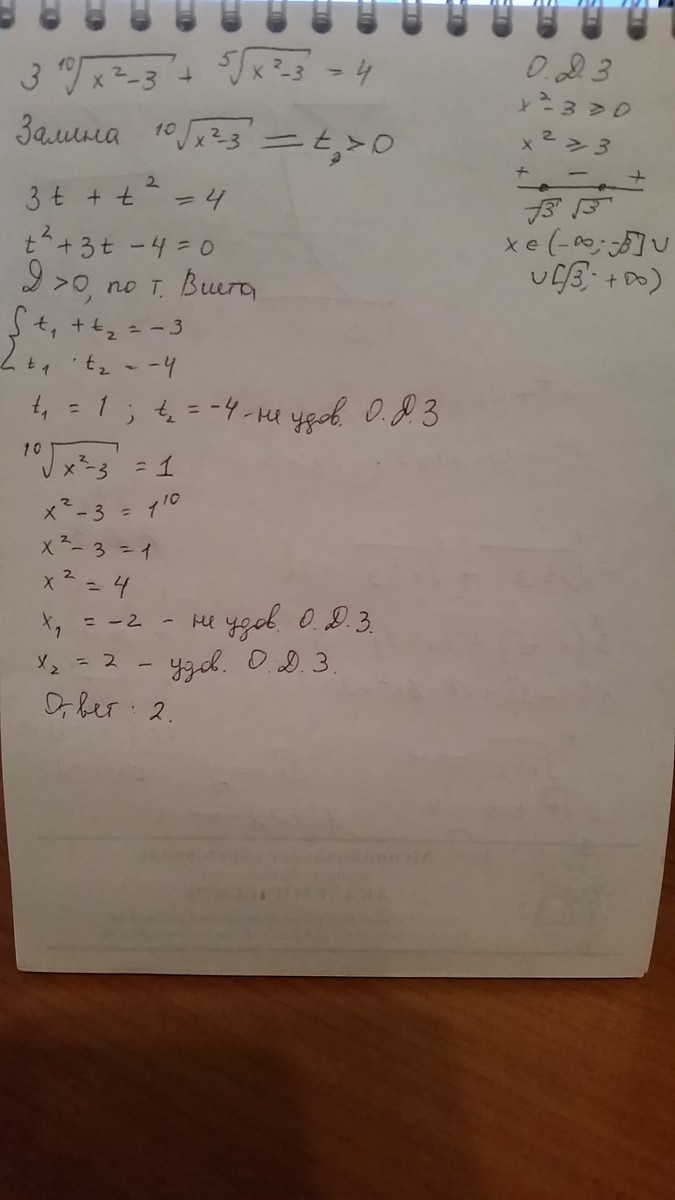 3 ¹⁰√(x²-3) + ⁵√(x²-3) = 4
Замина ¹⁰√(x²-3) = t, t > 0
3t + t² = 4
t² + 3t - 4 = 0
D > 0, по т. Виета
{ t₁ + t₂ = -3
t₁ · t₂ = -4
t₁ = 1 ; t₂ = -4 - не удов. О.Д.З
¹⁰√(x²-3) = 1
x² - 3 = 1¹⁰
x² - 3 = 1
x² = 4
x₁ = -2 - не удов. О.Д.З.
x₂ = 2 - удов. О.Д.З.
Ответ: 2.
О.Д.З
x² - 3 ⩾ 0
x² ⩾ 3
+ - +
-√3 √3
x ∈ (-∞; -√3] ∪
∪ [√3; +∞)